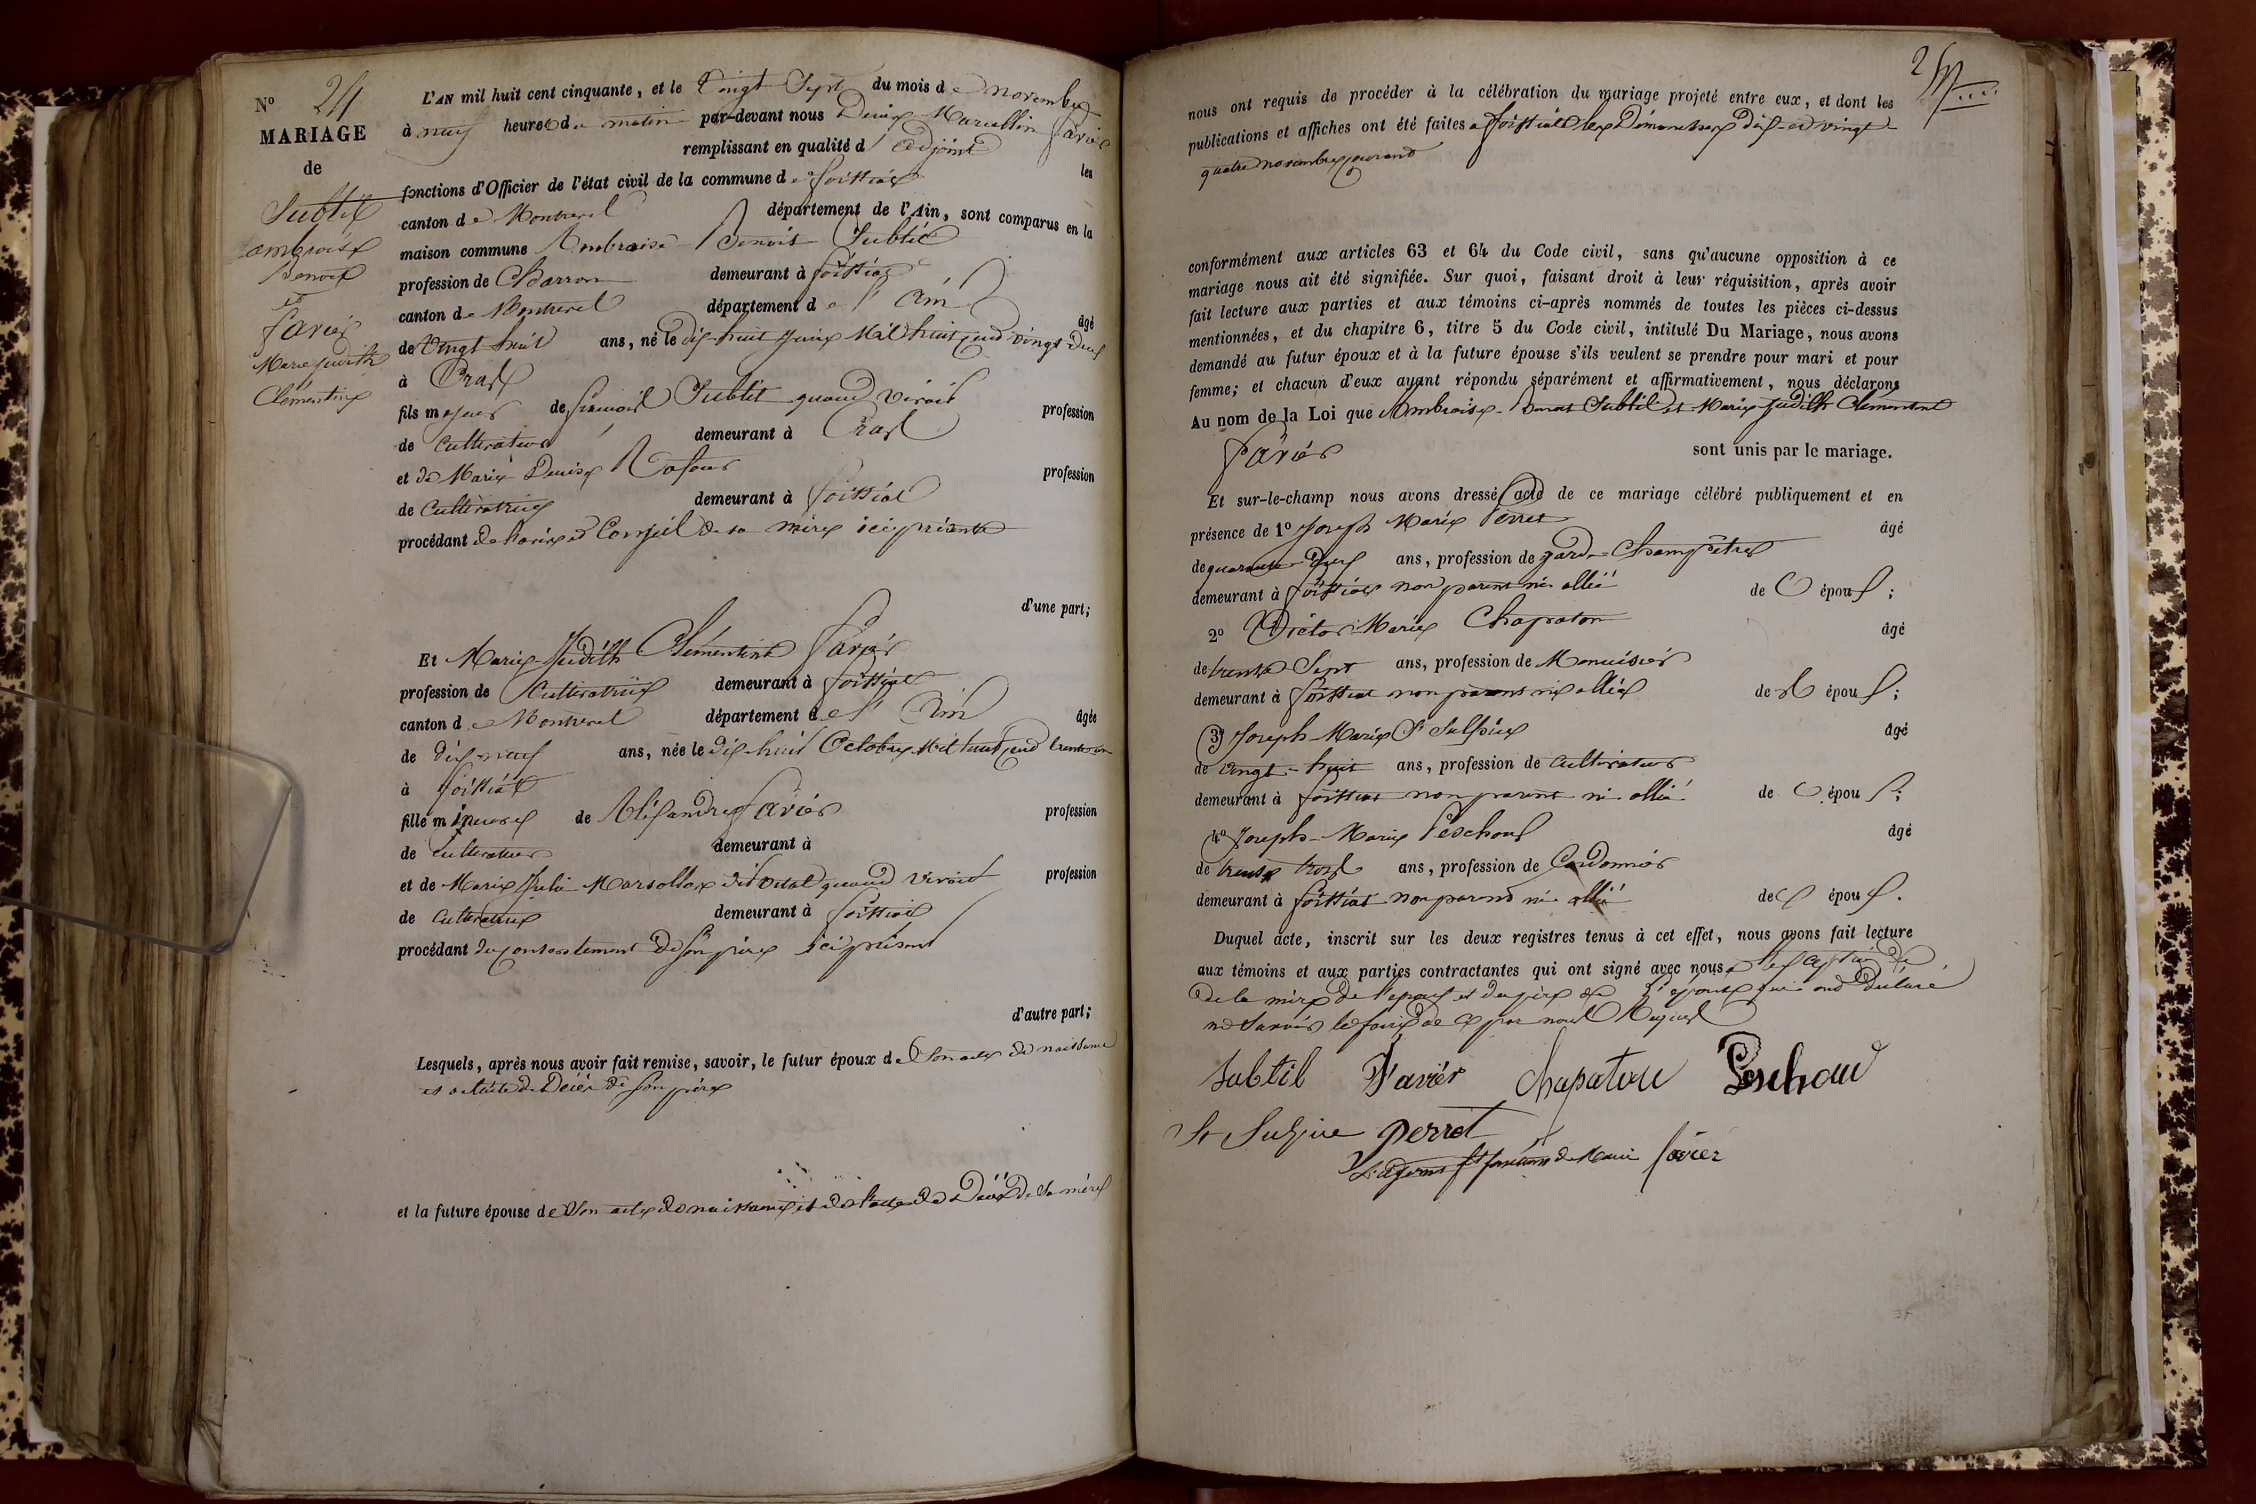 N° 24
MARIAGE
de
Subtil
ambroise
Benoit
et
favier
Marie judith
Clémentine
L'AN mil huit cent cinquante, et le Vingt Sept du mois de novembre
à neuf heures du matin par-devant nous Denis Marcellin favier
remplissant en qualité d'adjoint les
fonctions d'Officier de l'état civil de la commune de foissiat
canton de Montrevel département de l'Ain, sont comparus en la
maison commune Ambroise Benoit Subtil
profession de Charron demeurant à foissiat
canton de Montrevel département de l'Ain âgé
de Vingt huit ans, né le dix huit Juin Mil huit cend vingt deux
à Cras
fils majeur de francois Subtil quand vivait profession
de Cultivateur demeurant à Cras
et de Marie Denise profession
de Cultivatrice demeurant à foissiat
procédant de l'avis et Conseil de sa mère ici présente
d'une part;
Et Marie Judith Clémentine favier
profession de Cultivatrice demeurant à foissiat
canton de Montrevel département de l'Ain âgée
de dix neuf ans, née le dix huit Octobre Mil huit cend trente un
à foissiat
fille mineure de Aléxandre favier profession
de cultivateur demeurant à
et de Marie Julie Marsollax dit vital quand vivait profession
de Cultivatrice demeurant à foissiat
procédant du consentement de son père ici présent
d'autre part;
Lesquels, après nous avoir fait remise, savoir, le futur époux de son acte de naissance
et de Décés de son père
et la future épouse de son acte de naissance et de l'acte de Décés de sa mère
nous ont requis de procéder à la célébration du mariage projeté entre eux, et dont les
publications et affiches ont été faites a foissiat les Dimanches dix et vingt
quatre novembre courand
conformément aux articles 63 et 64 du Code civil, sans qu'aucune opposition à ce
mariage nous ait été signifiée. Sur quoi, faisant droit à leur réquisition, après avoir
fait lecture aux parties et aux témoins ci-après nommés de toutes les pièces ci-dessus
mentionnées, et du chapitre 6, titre 5 du Code civil, intitulé Du Mariage, nous avons
demandé au futur époux et à la future épouse s'ils veulent se prendre pour mari et pour
femme; et chacun d'eux ayant répondu séparément et affirmativement, nous déclarons
Au nom de la Loi que Ambroise Benoit Subtil et Marie Judith Clémentine
favier sont unis par le mariage.
Et sur-le-champ nous avons dressé acte de ce mariage célébré publiquement et en
présence de 1° Joseph Marie Perret âgé
de quarante deux ans, profession de garde Champêtre
demeurant à foissiat non parent ni allié de époux;
2° Victor Marie Chapaton âgé
de trente Sept ans, profession de Menuisier
demeurant à foissiat non parent ni allié de époux;
3° Joseph Marie St Sulpice âgé
de vingt huit ans, profession de Cultivateur
demeurant à foissiat non parent ni allié de époux;
4° Joseph Marie Peschoud âgé
de trente trois ans, profession de Cordonnier
demeurant à foissiat non parend ni allié de époux.
Duquel acte, inscrit sur les deux registres tenus à cet effet, nous avons fait lecture
aux témoins et aux parties contractantes qui ont signé avec nous
de la mère de l'époux et du père de l'épouse qui ond déclaré
ne Savoir le faire de ce par nous Requis
Subtil favier Chapaton Peschoud
St Sulpice Perret
L'adjoint de Maire favier